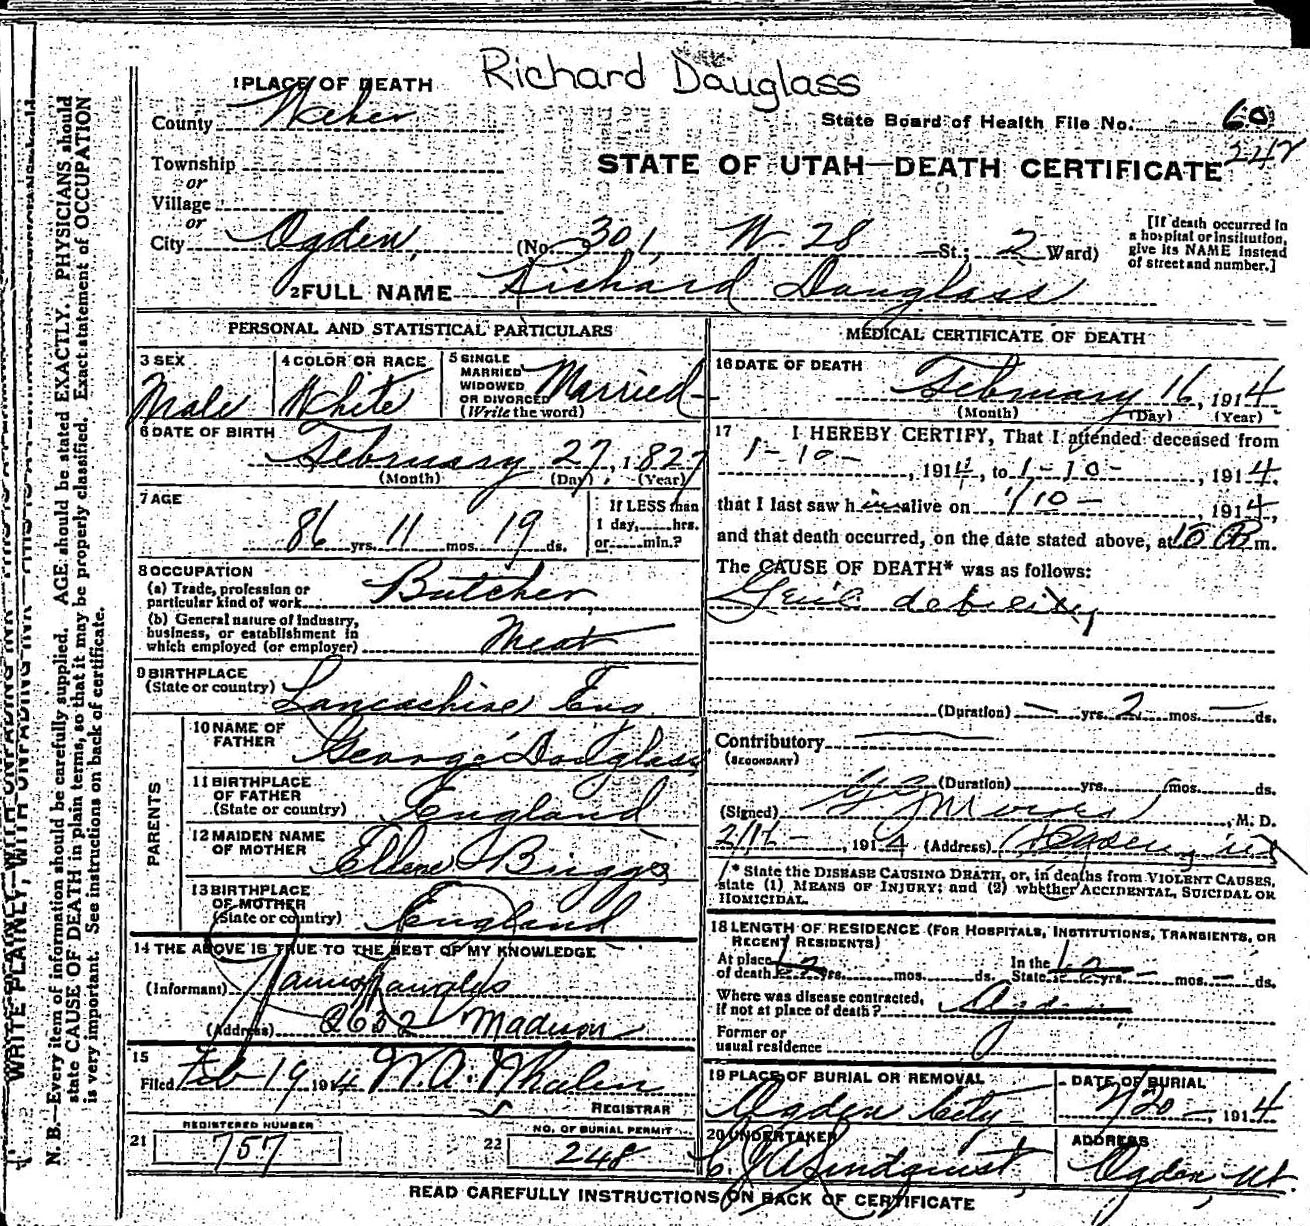 Richard Dauglass
1 PLACE OF DEATH
County Weber
State Board of Health File No. 60
242
Township
or
Village
or
STATE OF UTAH—DEATH CERTIFICATE
City Ogden, (No. 301, W. 28 St.; 2 Ward)
[If death occurred in
a hospital or institution,
give its NAME instead
of street and number.]
2 FULL NAME Richard Douglass
PERSONAL AND STATISTICAL PARTICULARS
3 SEX
Male
4 COLOR OR RACE
White
5 SINGLE
MARRIED
WIDOWED
OR DIVORCED
(Write the word)
Married
6 DATE OF BIRTH
February 27, 1827
(Month) (Day) (Year)
7 AGE
86 yrs. 11 mos. 19 ds.
If LESS than
1 day, hrs.
or min.?
8 OCCUPATION
(a) Trade, profession or
particular kind of work Butcher
(b) General nature of Industry,
business, or establishment in
which employed (or employer) Meat
9 BIRTHPLACE
(State or country) Lancashire Eng.
PARENTS
10 NAME OF
FATHER George Douglass
11 BIRTHPLACE
OF FATHER
(State or country) England
12 MAIDEN NAME
OF MOTHER Ellene Briggs
13 BIRTHPLACE
OF MOTHER
(State or country) England
14 THE ABOVE IS TRUE TO THE BEST OF MY KNOWLEDGE
(Informant)
(Address) 2632 Madison
15
Filed Feb 19 1914 W.A. Whalen
REGISTRAR
21 REGISTERED NUMBER
757
22 NO. OF BURIAL PERMIT
248
MEDICAL CERTIFICATE OF DEATH
16 DATE OF DEATH
February 16, 1914
(Month) (Day) (Year)
17 I HEREBY CERTIFY, That I attended deceased from
1-10-, 1914, to 1-10-, 1914.
that I last saw him alive on 1/10-, 1914,
and that death occurred, on the date stated above, at m.
The CAUSE OF DEATH* was as follows:
debility
(Duration) — yrs. 2 mos. — ds.
Contributory
(SECONDARY)
(Duration) yrs. mos. ds.
(Signed) , M. D.
, 1914 (Address) Ogden
* State the DISEASE CAUSING DEATH, or, in deaths from VIOLENT CAUSES,
state (1) MEANS OF INJURY; and (2) whether ACCIDENTAL, SUICIDAL OR
HOMICIDAL.
18 LENGTH OF RESIDENCE (FOR HOSPITALS, INSTITUTIONS, TRANSIENTS, OR
RECENT RESIDENTS)
At place
of death yrs. mos. ds.
In the
State yrs. — mos. — ds.
Where was disease contracted,
if not at place of death? Ogden
Former or
usual residence
19 PLACE OF BURIAL OR REMOVAL
Ogden City
DATE OF BURIAL
2/20 —, 1914
20 UNDERTAKER
C. J. A. Lindquist,
ADDRESS
Ogden, Ut.
READ CAREFULLY INSTRUCTIONS ON BACK OF CERTIFICATE
WRITE PLAINLY, WITH UNFADING INK—THIS IS A PERMANENT
N. B.—Every item of information should be carefully supplied. AGE should be stated EXACTLY. PHYSICIANS should
state CAUSE OF DEATH in plain terms, so that it may be properly classified. Exact statement of OCCUPATION
is very important. See instructions on back of certificate.